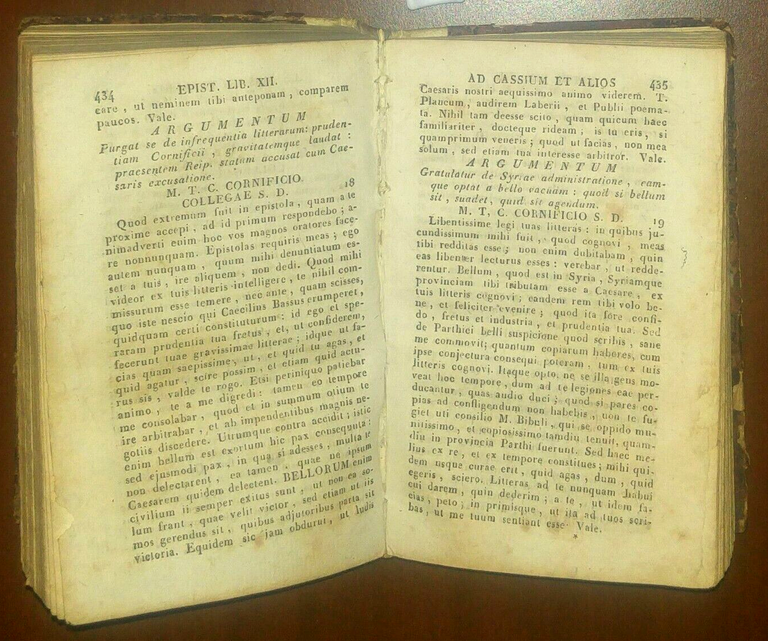 434 EPIST. LIB. XII.
care , ut neminem tibi anteponam , comparem
paucos. Vale.
ARGUMENTUM
Purgat se de infrequentia litterarum: pruden-
tiam Cornificii , gravitatemque laudat :
praesentem Reip. statum accusat cum Cae-
saris excusatione.
M. T. C. CORNIFICIO 18
COLLEGAE S. D.
Quod extremum fuit in epistola , quam a te
proxime accepi , ad id primum respondebo ; a-
nimadverti enim hoc vos magnos oratores face-
re nonnunquam. Epistolas requiris meas ; ego
autem nunquam , quum mihi denuntiatum es-
set a tuis , ire aliquem , non dedi. Quod mihi
videor ex tuis litteris intelligere , te nihil com-
missurum esse temere , nec ante , quam scisses,
quo iste nescio qui Caecilius Bassus erumperet,
quidquam certi constituturum : id ego et spe-
raram prudentia tua fretus , et , ut confiderem,
fecerunt tuae gravissimae litterae ; idque ut fa-
cias quam saepissime , ut , et quid tu agas , et
quid agatur , scire possim , et etiam quid actu-
rus sis , valde te rogo. Etsi periniquo patiebar
animo , te a me digredi : tamen eo tempore
me consolabar , quod et in summum otium te
ire arbitrabar , et ab impendentibus magnis ne-
gotiis discedere. Utrumque contra accidit ; istic
enim bellum est exortum hic pax consequuta :
sed ejusmodi pax , in qua si adesses , multa te
non delectarent , ea tamen , quae ne ipsum
Caesarem quidem delectent. BELLORUM enim
civilium ii semper exitus sunt , ut non ea so-
lum fiant , quae velit victor , sed etiam ut iis
mos gerendus sit , quibus adjutoribus parta sit
victoria. Equidem sic jam obdurui , ut ludis
AD CASSIUM ET ALIOS 435
Caesaris nostri aequissimo animo viderem. T.
Plancum , audirem Laberii , et Publii poema-
ta. Nihil tam deesse scito , quam quicum haec
familiariter , docteque rideam , is tu eris , si
quamprimum veneris ; quod ut facias , non mea
solum , sed etiam tua interesse arbitror. Vale.
ARGUMENTUM
Gratulatur de Syriae administratione , eam-
que optat a bello vacuam : quod si bellum
sit , suadet , quid sit agendum.
M. T. C. CORNIFICIO S. D. 19
Libentissime legi tuas litteras : in quibus ju-
cundissimum mihi fuit , quod cognovi , meas
tibi redditas esse ; non enim dubitabam , quin
eas libenter lecturus esses : verebar , ut redde-
rentur. Bellum , quod est in Syria , Syriamque
provinciam tibi tributam esse a Caesare , ex
tuis litteris cognovi ; eandem rem tibi volo be-
ne , et feliciter evenire ; quod ita fore confi-
do , fretus et industria , et prudentia tua. Sed
de Parthici belli suspicione quod scribis , sane
me commovit; quantum copiarum haberes, cum
ipse conjectura consequi poteram , tum ex tuis
litteris cognovi. Itaque opto, ne se illa gens mo-
veat hoc tempore , dum ad te legiones eae per-
ducantur , quas audio duci ; quod si pares co-
pias ad confligendum non habebis , non te fu-
giet uti consilio M. Bibuli , qui se oppido mu-
nitissimo , et copiosissimo tamdiu tenuit, quam-
diu in provincia Parthi fuerunt. Sed haec me-
lius ex re , et ex tempore constitues ; mihi qui-
dem usque curae erit , quid agas , dum , quid
egeris , sciero. Litteras ad te nunquam habui
cui darem , quin dederim ; a te , ut idem fa-
cias , peto ; in primisque , ut ita ad tuos scri-
bas , ut me tuum sentiant esse. Vale.